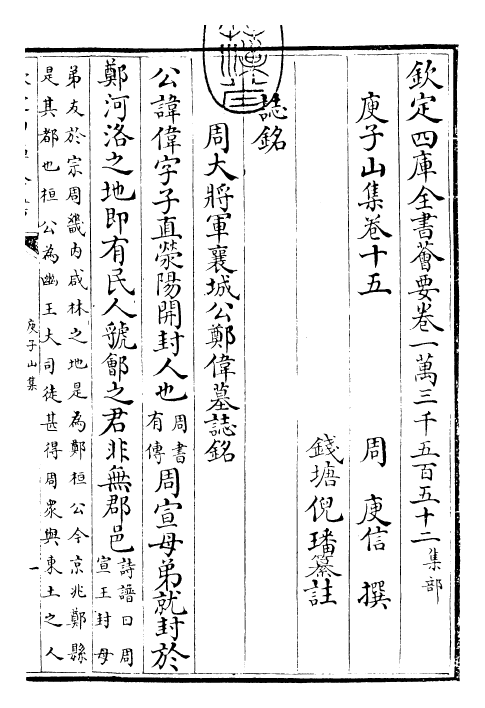 欽定四庫全書薈要卷一萬三千五百五十二集部
庾子山集卷十五
周 庾信 撰
錢塘倪璠纂註
誌銘
周大將軍襄城公鄭偉墓誌銘
公諱偉字子直滎陽開封人也周書有傳周宣母弟就封於
鄭河洛之地即有民人虢鄶之君非無郡邑詩譜曰周宣王封母
弟友於宗周畿內咸林之地是為鄭桓公今京兆鄭縣
是其都也桓公為幽王大司徒甚得周衆與東土之人
庾子山集
一